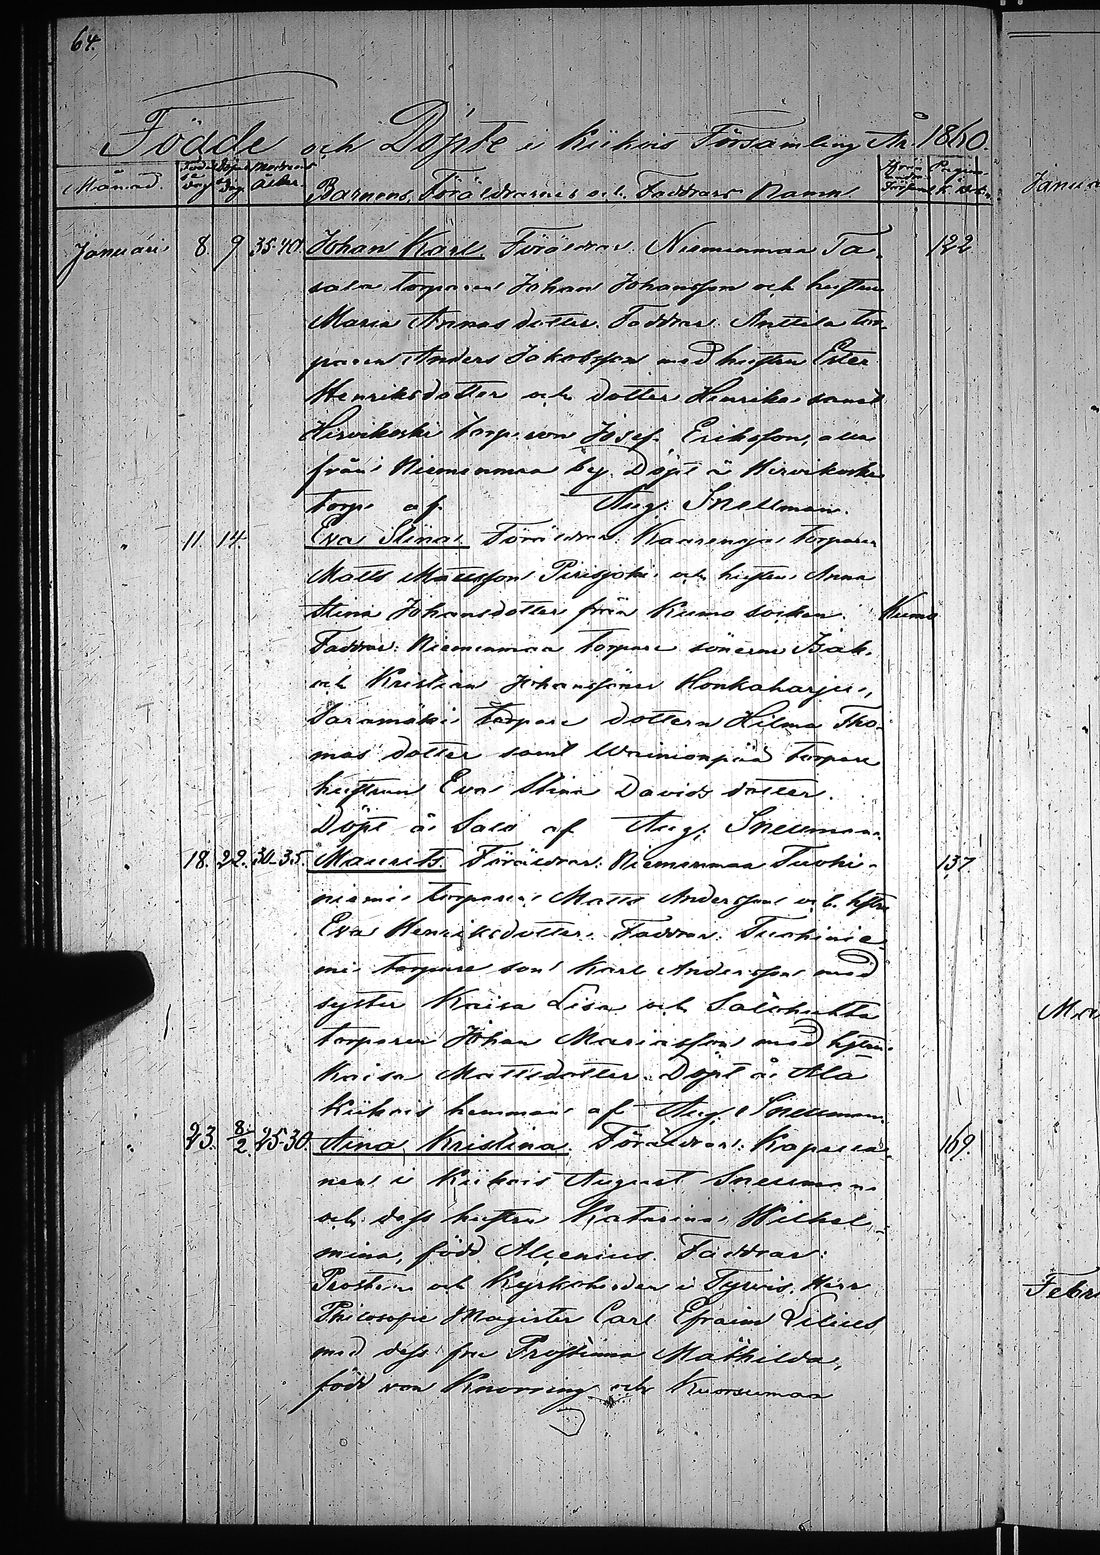 64.
Födde och Döpte i Kiikois Församling År 1860.
Månad. Födelse dag Döpelse dag Modrens Ålder. Barnens, Föräldrarnes och Faddrars Namn. Pagina
Januari 8. 9. 35-40. Johan Karl. Föräldrar: Niemenmaa Ta- 122
sala torparen Johan Johansson och hustrun
Maria Annasdotter. Faddrar: Anttila tor-
paren Anders Jakobsson med hustrun Ester
Henriksdotter och dotter Henrika samt
Hirvikoski torpe son Josef Eriksson, alla
från Niemenmaa by. Döpt å Hirvikoski
torp af Aug. Snellman.
11. 14. Eva Stina. Föräldrar: torparen
Matts Mattsson Pirisjoki och hustrun Anna
Stina Johansdotter från Kumo socken. Kumo
Faddrar: Niemenmaa torpare sönerne Isak
och Kristian Johanssöner Honkaharju,
Saramäki torpare dottern Hilma Tho-
mas dotter samt Wainionpää torpare
hustrun Eva Stina Davids dotter.
Döpt å Salo af Aug. Snellman.
18. 22. 30-35. Maurits. Föräldrar: Niemenmaa Tuohi- 137
niemi torparen Matts Andersson och hstru
Eva Henriksdotter. Faddrar: Tuohinie-
mi torpare son Karl Andersson med
syster Kaisa Lisa och
torparen Johan Mariasson med hstrun
Kaisa Mattsdotter. Döpt å Ala
Kiikois hemman af Aug. Snellman.
23. 8/2 25-30. Aina Kristina. Föräldrar: Kapella- 169.
nen i Kiikois August Snellman
och dess hustru Katarina Wilhel-
mina, född Alcenius. Faddrar:
Prosten och Kyrkoherden i Tyrvis, Herr
Philosophie Magister Carl Efraim Lilius
med dess fru Prostinna Mathilda,
född von Knorring och Kuorsumaa
Janua
Mar
Febru